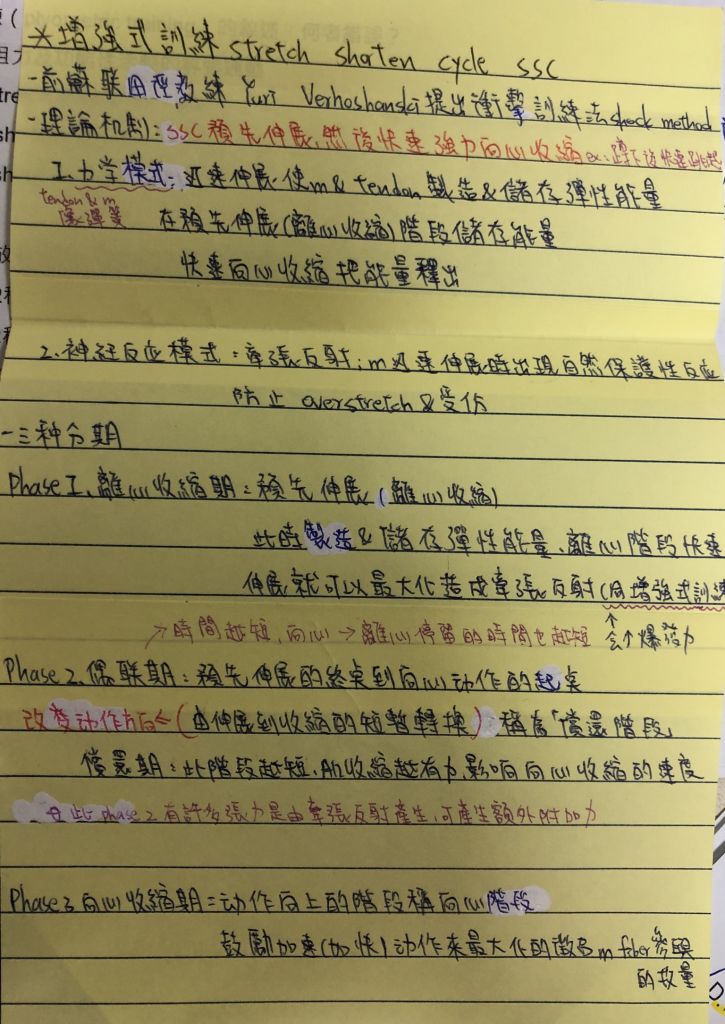 *增強式訓練 stretch shorten cycle SSC
-前蘇联田徑教練 Yuri Verhoshanski 提出衝擊訓練法 shock method
-理論机制: SSC 預先伸展, 然後快速強力向心收縮 ex. 蹲下後快速跳起
1. 力学模式: 迅速伸展, 使m & tendon 製造&儲存彈性能量
tendon & m
像彈簧
在預先伸展(離心收縮)階段儲存能量
快速向心收縮把能量釋出
2. 神経反应模式: 牽張反射; m迅速伸展時出現自然保護性反应
防止 overstretch & 受伤
-三种分期
Phase 1. 離心收縮期: 預先伸展(離心收縮)
此時製造&儲存彈性能量, 離心階段快速
伸展就可以最大化造成牽張反射(因增強式訓練
↑会↑爆發力
→時間越短, 向心→離心停留的時間也越短
Phase 2. 偶联期: 預先伸展的終点到向心动作的起点
改变动作方向←(由伸展到收縮的短暫轉換), 稱為「償還階段」
償還期: 此階段越短, m收縮越有力, 影响向心收縮的速度
在此 phase 2 有許多張力是由牽張反射產生, 可產生額外附加力
Phase 3 向心收縮期: 动作向上的階段稱向心階段
鼓勵加速(加快)动作來最大化的徵召 m fiber 參與
的数量